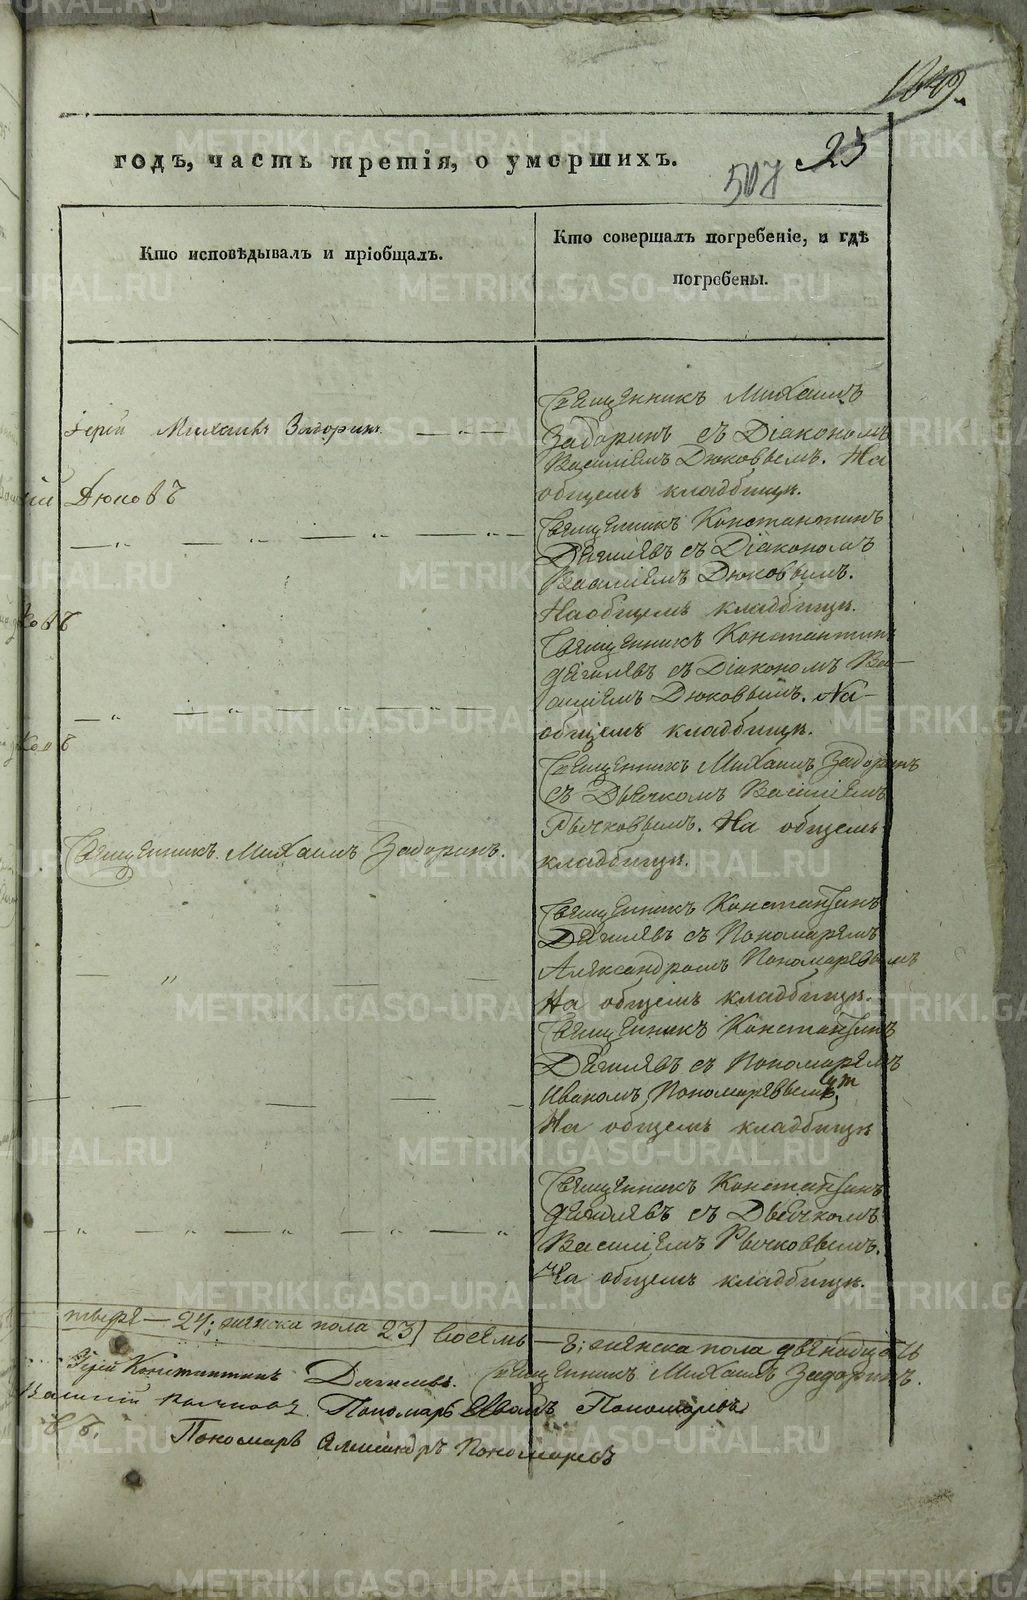 1849.
23
507
годъ, часть третія, о умершихъ.
Кто исповѣдывалъ и пріобщалъ.
Кто совершалъ погребеніе, и гдѣ
погребены.
Іерей Михаилъ Задоринъ
Дюковъ
Священникъ Михаилъ Задоринъ.
Священникъ Михаилъ
Задоринъ съ Діакономъ
Василіемъ Дюковымъ. На
общемъ кладбищѣ.
Священникъ Константинъ
Дягилевъ съ Діакономъ
Василіемъ Дюковымъ.
На общемъ кладбищѣ.
Священникъ Константинъ
Дягилевъ съ Діакономъ Ва-
силіемъ Дюковымъ. На
общемъ кладбищѣ.
Священникъ Михаилъ Задоринъ
съ Дьячкомъ Василіемъ
Рычковымъ. На общемъ
кладбищѣ.
Священникъ Константинъ
Дягилевъ съ Пономаремъ
Александромъ Пономаревымъ
На общемъ кладбищѣ.
Священникъ Константинъ
Дягилевъ съ Пономаремъ
Иваномъ Пономаревымъ
На общемъ кладбищѣ
Священникъ Константинъ
Дягилевъ съ Дьячкомъ
Василіемъ Рычковымъ.
На общемъ кладбищѣ.
24; женска пола 23) восемь — 8; женска пола двѣнадцать
Іерей Константинъ Дягилевъ. Священникъ Михаилъ Задоринъ.
Пономарь Иванъ Пономаревъ
Пономарь Александръ Пономаревъ
METRIKI.GASO-URAL.RU